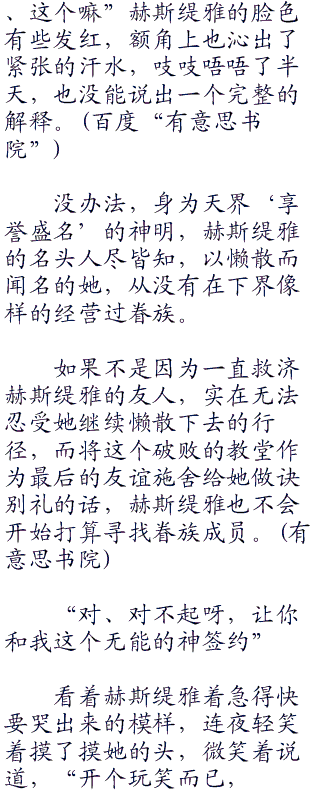 、这个嘛”赫斯缇雅的脸色
有些发红，额角上也沁出了
紧张的汗水，吱吱唔唔了半
天，也没能说出一个完整的
解释。(百度“有意思书
院”)
没办法，身为天界‘享
誉盛名’的神明，赫斯缇雅
的名头人尽皆知，以懒散而
闻名的她，从没有在下界像
样的经营过眷族。
如果不是因为一直救济
赫斯缇雅的友人，实在无法
忍受她继续懒散下去的行
径，而将这个破败的教堂作
为最后的友谊施舍给她做诀
别礼的话，赫斯缇雅也不会
开始打算寻找眷族成员。(有
意思书院)
“对、对不起呀，让你
和我这个无能的神签约”
看着赫斯缇雅着急得快
要哭出来的模样，连夜轻笑
着摸了摸她的头，微笑着说
道，“开个玩笑而已，